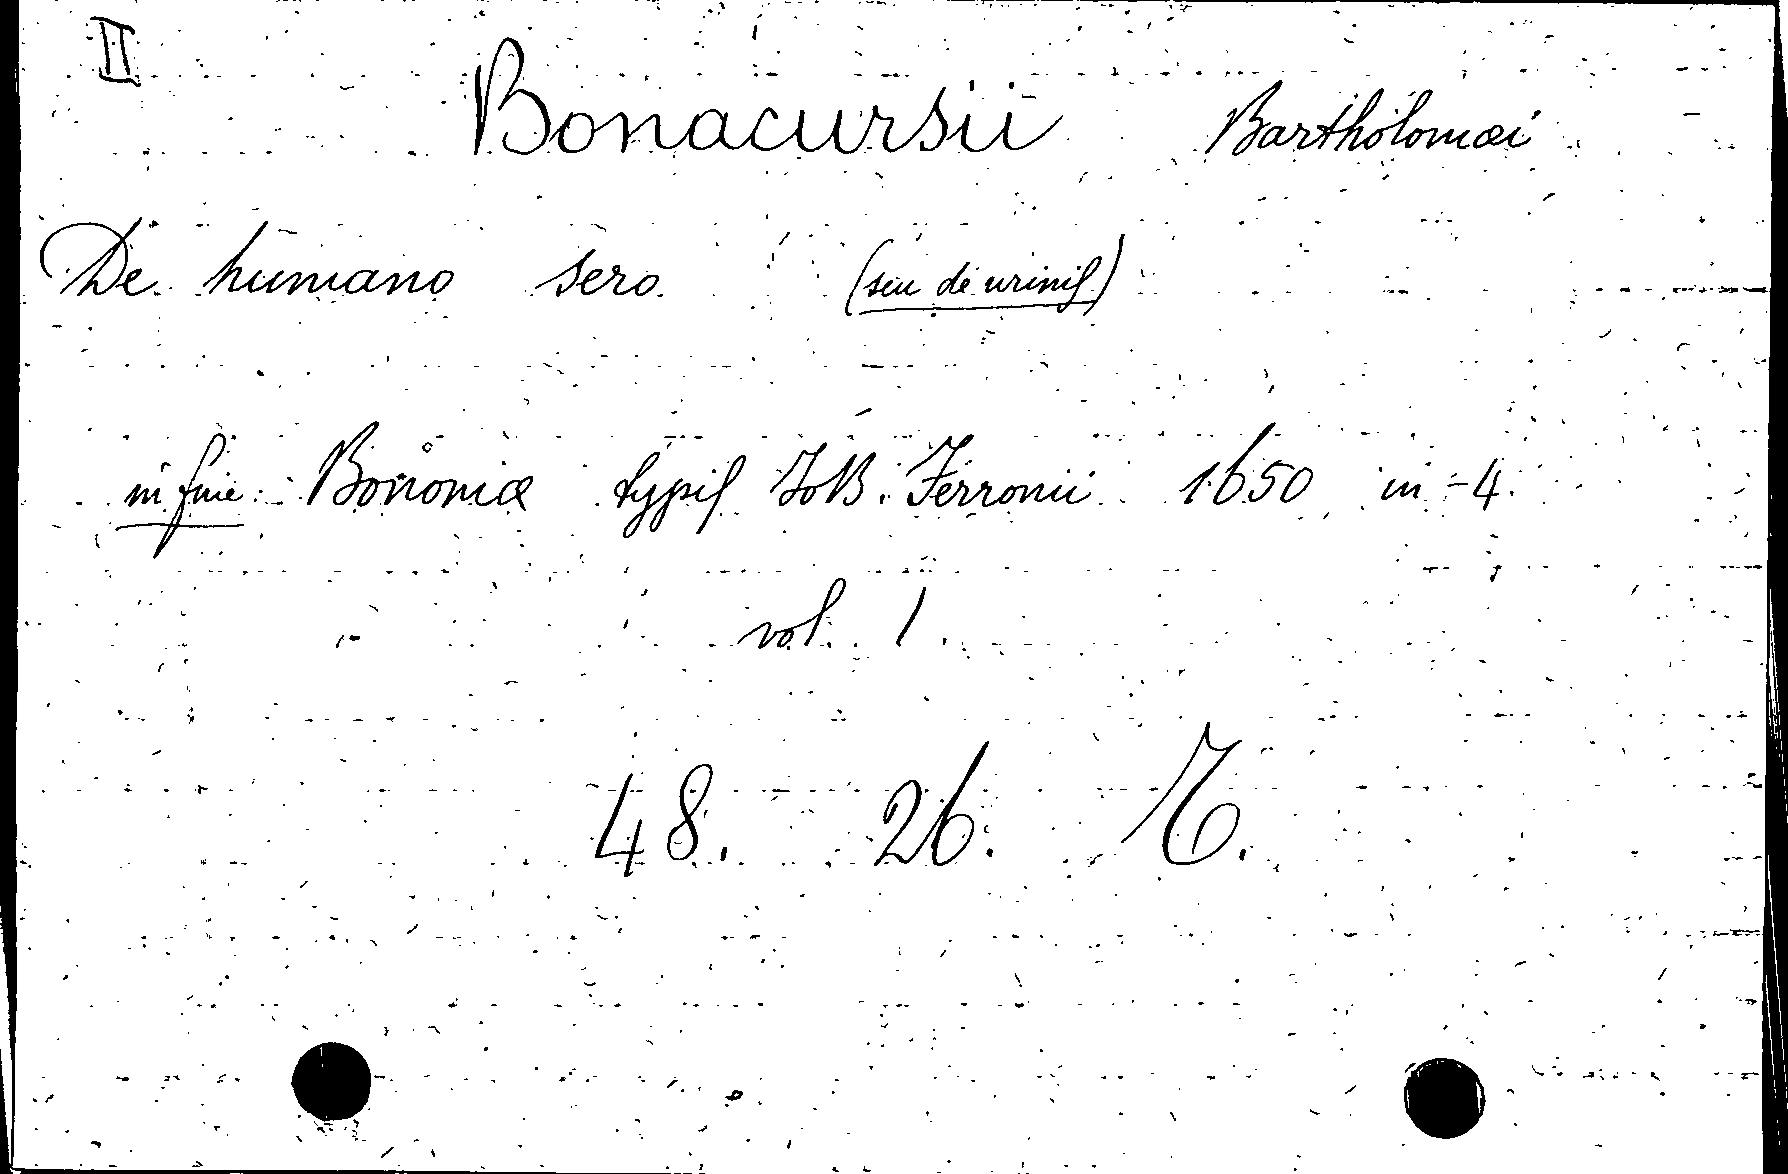 II
Bonacursii Bartholomæi
De humano sero (seu de urinis)
in fine: Bononiæ typis Jo B. Ferronii 1650 in-4.
vol. 1
48. 26.